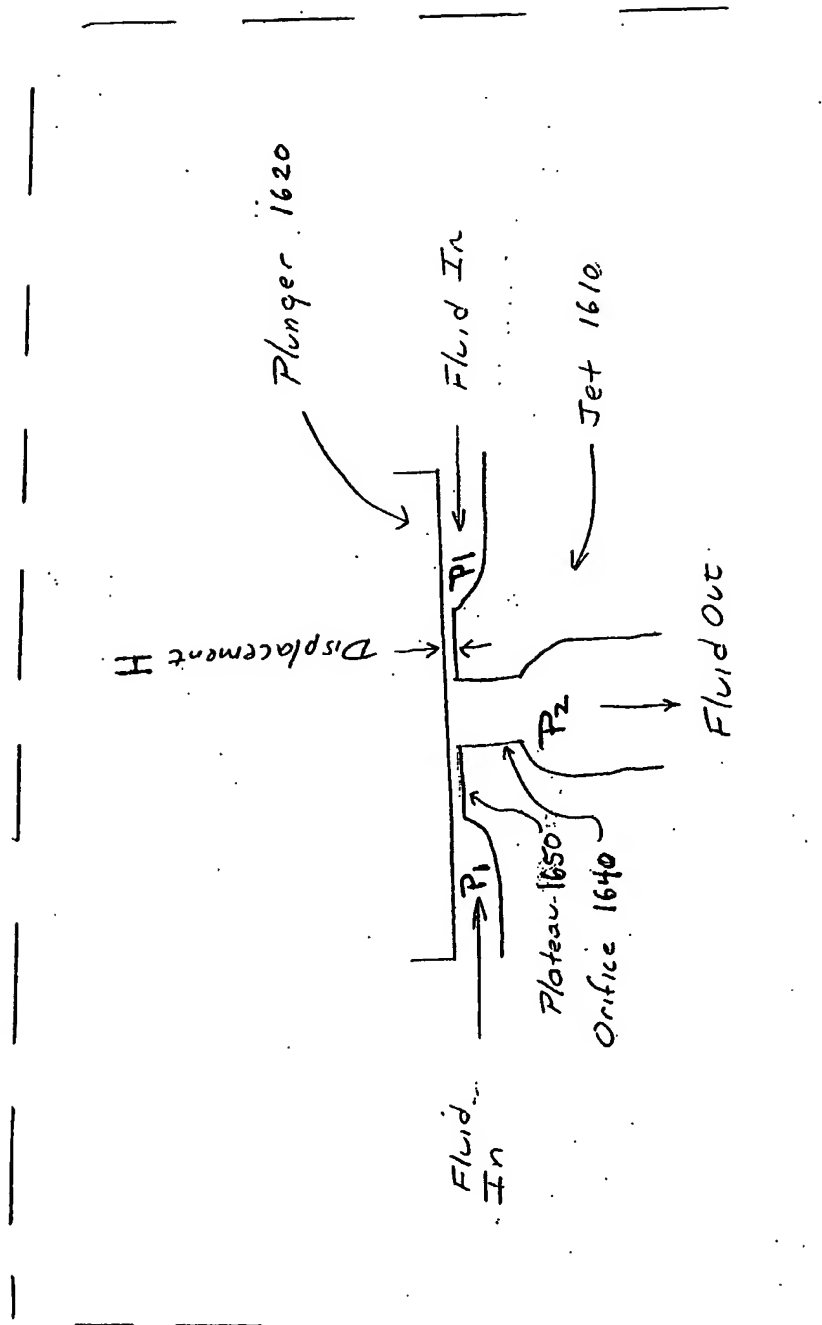 Plunger 1620
Fluid In
Jet 1610
Displacement H
P1
P1
P2
Fluid Out
Plateau 1650
Orifice 1640
Fluid
In